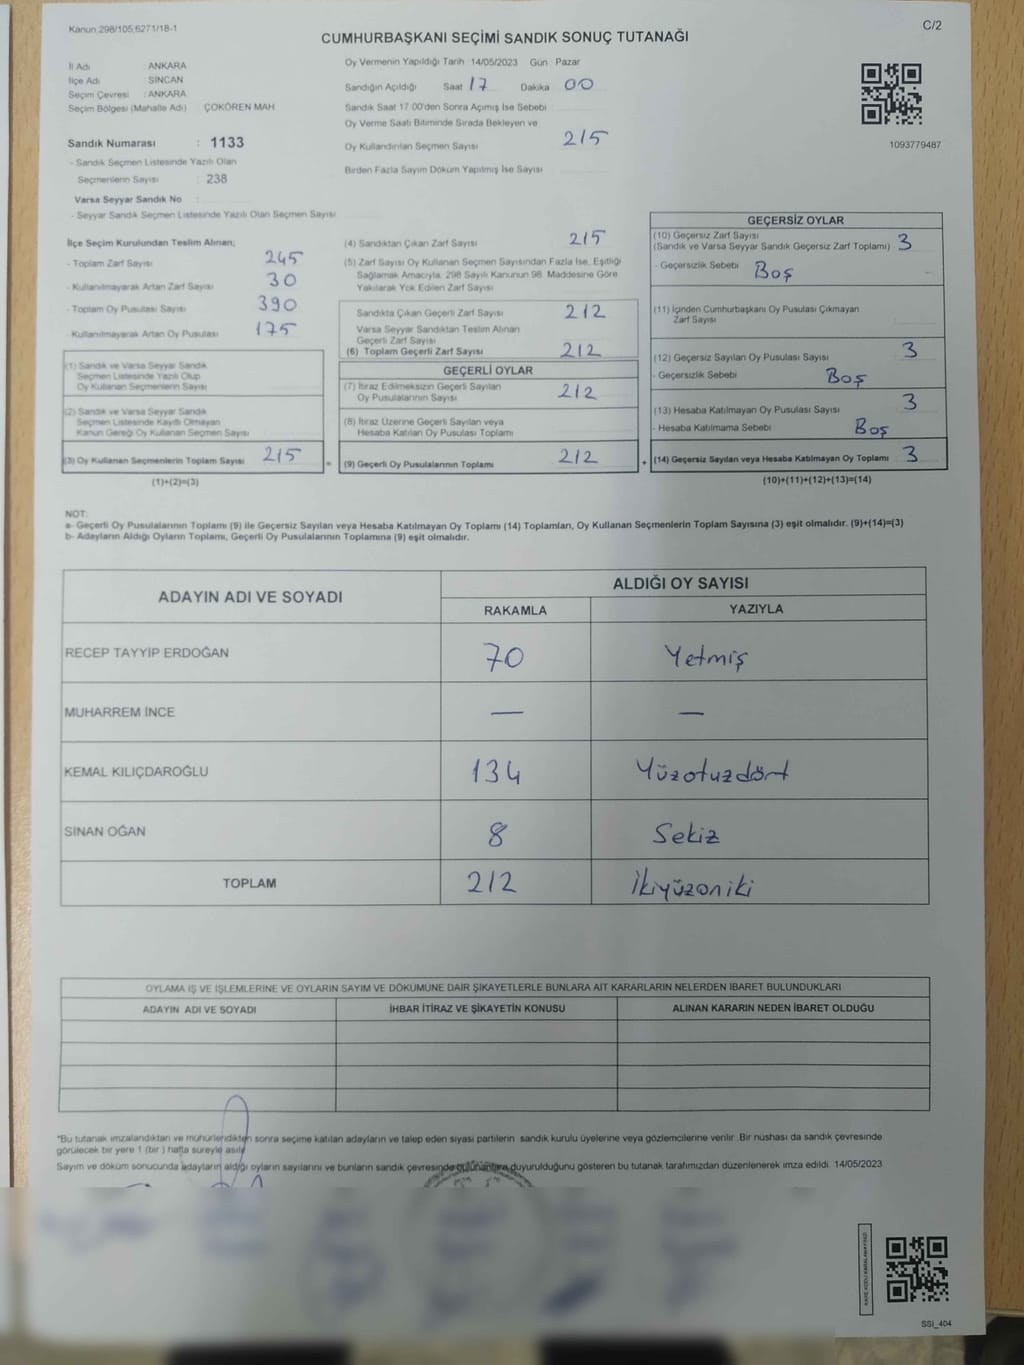 Kanun.298/105,6271/18-1
C/2
CUMHURBAŞKANI SEÇİMİ SANDIK SONUÇ TUTANAĞI
İl Adı : ANKARA
İlçe Adı : SİNCAN
Seçim Çevresi : ANKARA
Seçim Bölgesi (Mahalle Adı) : ÇOKÖREN MAH.
Sandık Numarası : 1133
- Sandık Seçmen Listesinde Yazılı Olan
Seçmenlerin Sayısı : 238
Varsa Seyyar Sandık No
- Seyyar Sandık Seçmen Listesinde Yazılı Olan Seçmen Sayısı
Oy Vermenin Yapıldığı Tarih 14/05/2023 Gün : Pazar
Sandığın Açıldığı Saat 17 Dakika 00
Sandık Saat 17.00'den Sonra Açımış İse Sebebi
Oy Verme Saati Bitiminde Sırada Bekleyen ve
Oy Kullandırılan Seçmen Sayısı 215
Birden Fazla Sayım Döküm Yapılmış İse Sayısı
1093779487
İlçe Seçim Kurulundan Teslim Alınan;
- Toplam Zarf Sayısı 245
- Kullanılmayarak Artan Zarf Sayısı 30
- Toplam Oy Pusulası Sayısı 390
- Kullanılmayarak Artan Oy Pusulası 175
(1) Sandık ve Varsa Seyyar Sandık
Seçmen Listesinde Yazılı Olup
Oy Kullanan Seçmenlerin Sayısı
(2) Sandık ve Varsa Seyyar Sandık
Seçmen Listesinde Kayıtlı Olmayan
Kanun Gereği Oy Kullanan Seçmen Sayısı
(3) Oy Kullanan Seçmenlerin Toplam Sayısı 215
(1)+(2)=(3)
(4) Sandıktan Çıkan Zarf Sayısı 215
(5) Zarf Sayısı Oy Kullanan Seçmen Sayısından Fazla İse, Eşitliği
Sağlamak Amacıyla, 298 Sayılı Kanunun 98. Maddesine Göre
Yakılarak Yok Edilen Zarf Sayısı
Sandıkta Çıkan Geçerli Zarf Sayısı 212
Varsa Seyyar Sandıktan Teslim Alınan
Geçerli Zarf Sayısı
(6) Toplam Geçerli Zarf Sayısı 212
GEÇERLİ OYLAR
(7) İtiraz Edilmeksizin Geçerli Sayılan
Oy Pusulalarının Sayısı 212
(8) İtiraz Üzerine Geçerli Sayılan veya
Hesaba Katılan Oy Pusulası Toplamı
= (9) Geçerli Oy Pusulalarının Toplamı 212
GEÇERSİZ OYLAR
(10) Geçersiz Zarf Sayısı
(Sandık ve Varsa Seyyar Sandık Geçersiz Zarf Toplamı) 3
- Geçersizlik Sebebi Boş
(11) İçinden Cumhurbaşkanı Oy Pusulası Çıkmayan
Zarf Sayısı
(12) Geçersiz Sayılan Oy Pusulası Sayısı 3
- Geçersizlik Sebebi Boş
(13) Hesaba Katılmayan Oy Pusulası Sayısı 3
- Hesaba Katılmama Sebebi Boş
+ (14) Geçersiz Sayılan veya Hesaba Katılmayan Oy Toplamı 3
(10)+(11)+(12)+(13)=(14)
NOT:
a- Geçerli Oy Pusulalarının Toplamı (9) ile Geçersiz Sayılan veya Hesaba Katılmayan Oy Toplamı (14) Toplamları, Oy Kullanan Seçmenlerin Toplam Sayısına (3) eşit olmalıdır. (9)+(14)=(3)
b- Adayların Aldığı Oyların Toplamı, Geçerli Oy Pusulalarının Toplamına (9) eşit olmalıdır.
ADAYIN ADI VE SOYADI
ALDIĞI OY SAYISI
RAKAMLA YAZIYLA
RECEP TAYYİP ERDOĞAN 70 Yetmiş
MUHARREM İNCE — —
KEMAL KILIÇDAROĞLU 134 Yüzotuzdört
SİNAN OĞAN 8 Sekiz
TOPLAM 212 İkiyüzoniki
OYLAMA İŞ VE İŞLEMLERİNE VE OYLARIN SAYIM VE DÖKÜMÜNE DAİR ŞİKAYETLERLE BUNLARA AİT KARARLARIN NELERDEN İBARET BULUNDUKLARI
ADAYIN ADI VE SOYADI İHBAR İTİRAZ VE ŞİKAYETİN KONUSU ALINAN KARARIN NEDEN İBARET OLDUĞU
*Bu tutanak imzalandıktan ve mühürlendikten sonra seçime katılan adayların ve talep eden siyasi partilerin sandık kurulu üyelerine veya gözlemcilerine verilir. Bir nüshası da sandık çevresinde
görülecek bir yere 1 (bir ) hafta süreyle asılır.
Sayım ve döküm sonucunda adayların aldığı oyların sayılarını ve bunların sandık çevresinde bulunanlara duyurulduğunu gösteren bu tutanak tarafımızdan düzenlenerek imza edildi. 14/05/2023
SSI_404